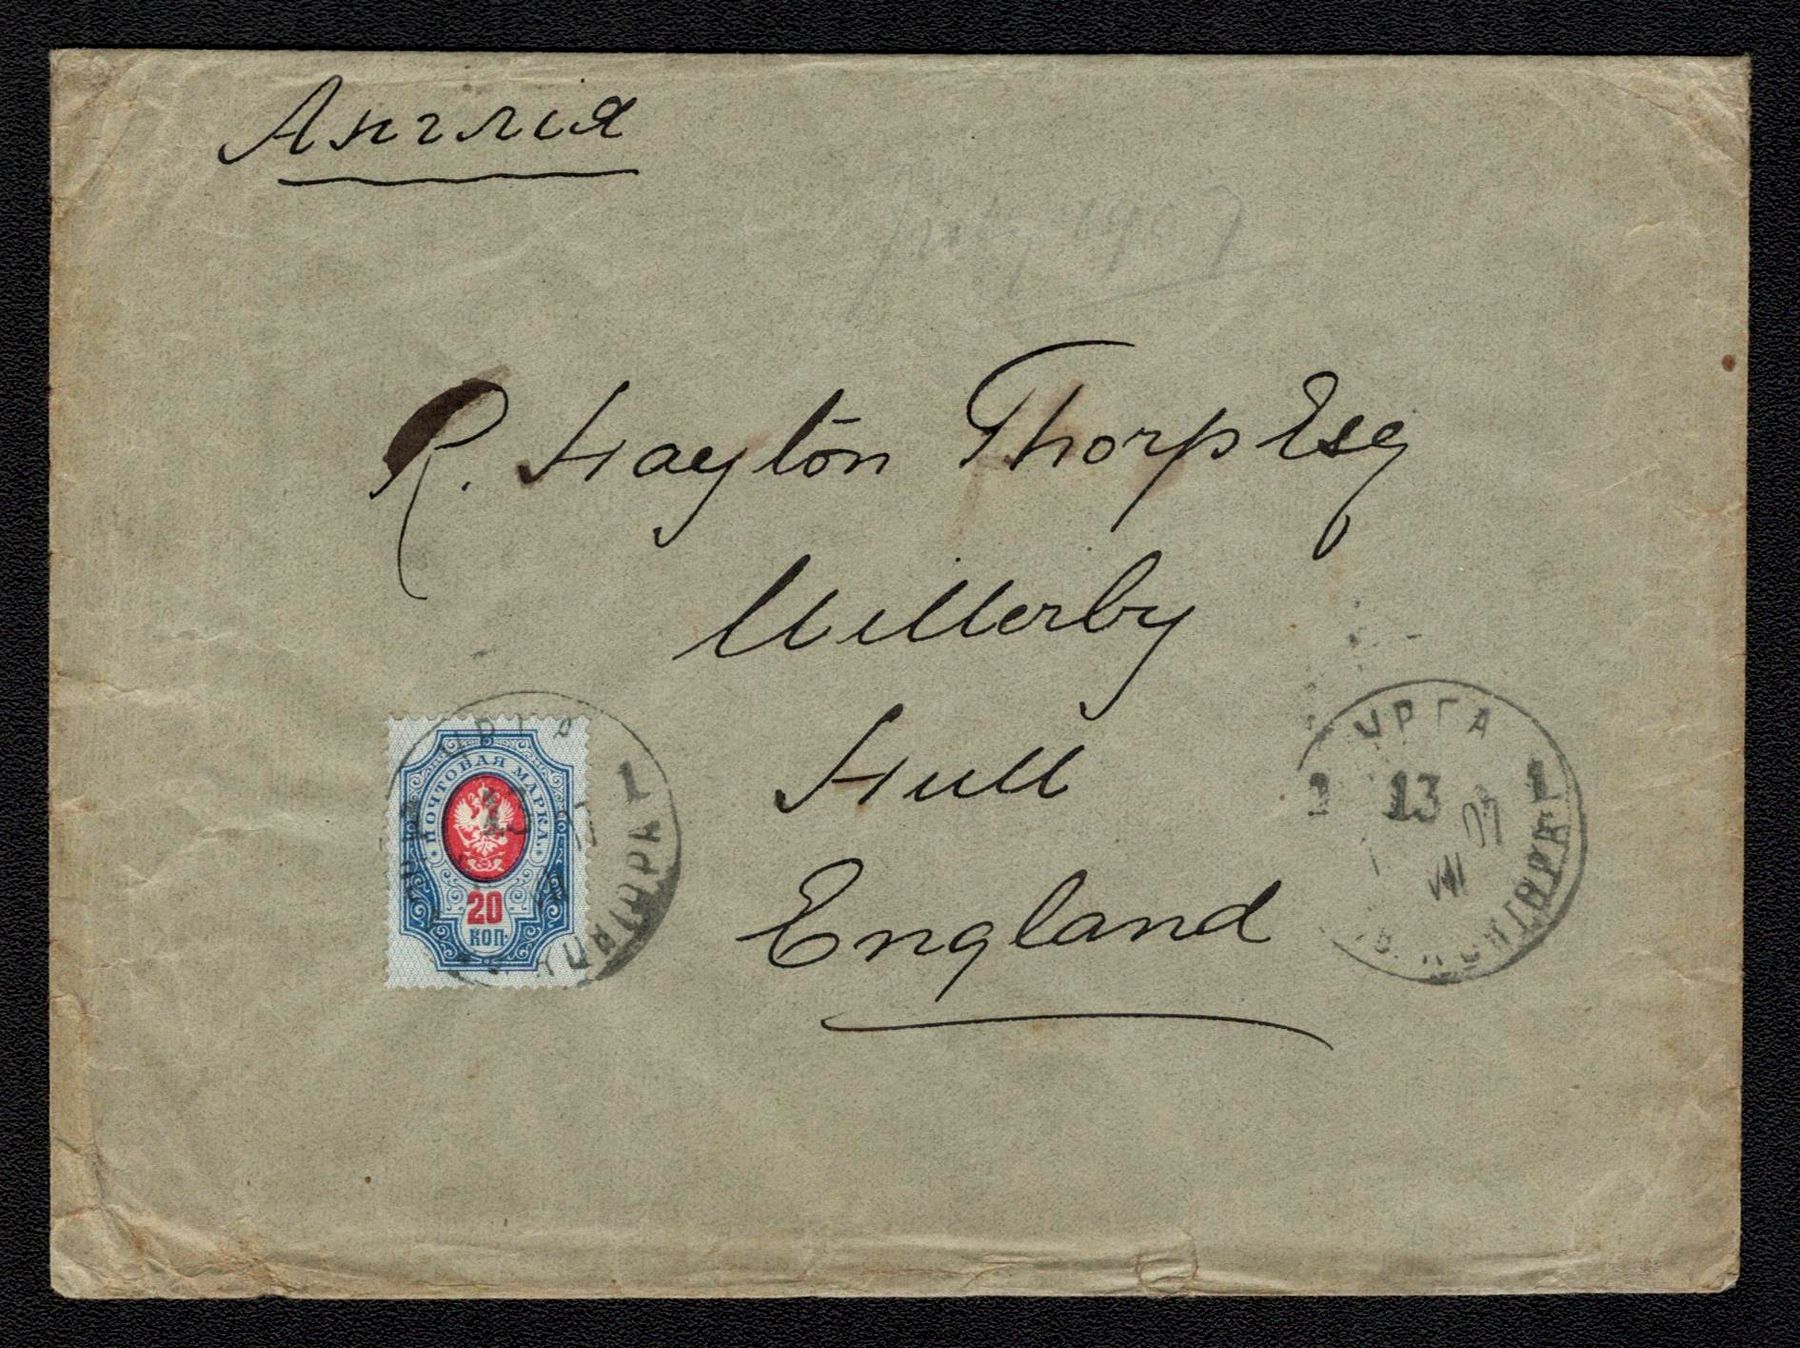 Англія
July 1907
R. Hayton Thorp Esq
Willerby
Hull
England
ПОЧТОВАЯ МАРКА
20
КОП.
УРГА
1 13 1
VII 07
УРГА